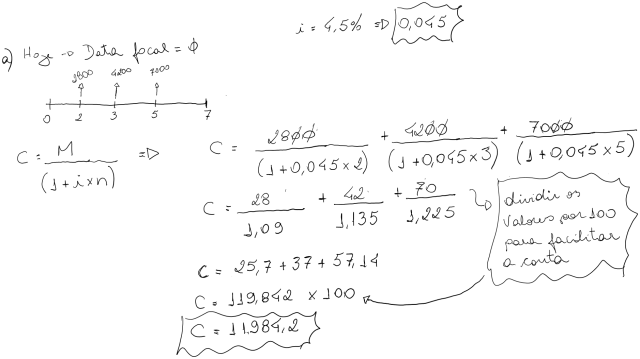 i = 4,5% => 0,045
a) Hoje -> Data focal = 0
2800 4200 7000
0 2 3 5 7
C = M / (1 + i x n) => C = 2800 / (1 + 0,045 x 2) + 4200 / (1 + 0,045 x 3) + 7000 / (1 + 0,045 x 5)
C = 28 / 1,09 + 42 / 1,135 + 70 / 1,225
dividir os
valores por 100
para facilitar
a conta
C = 25,7 + 37 + 57,14
C = 119,842 x 100
C = 11.984,2